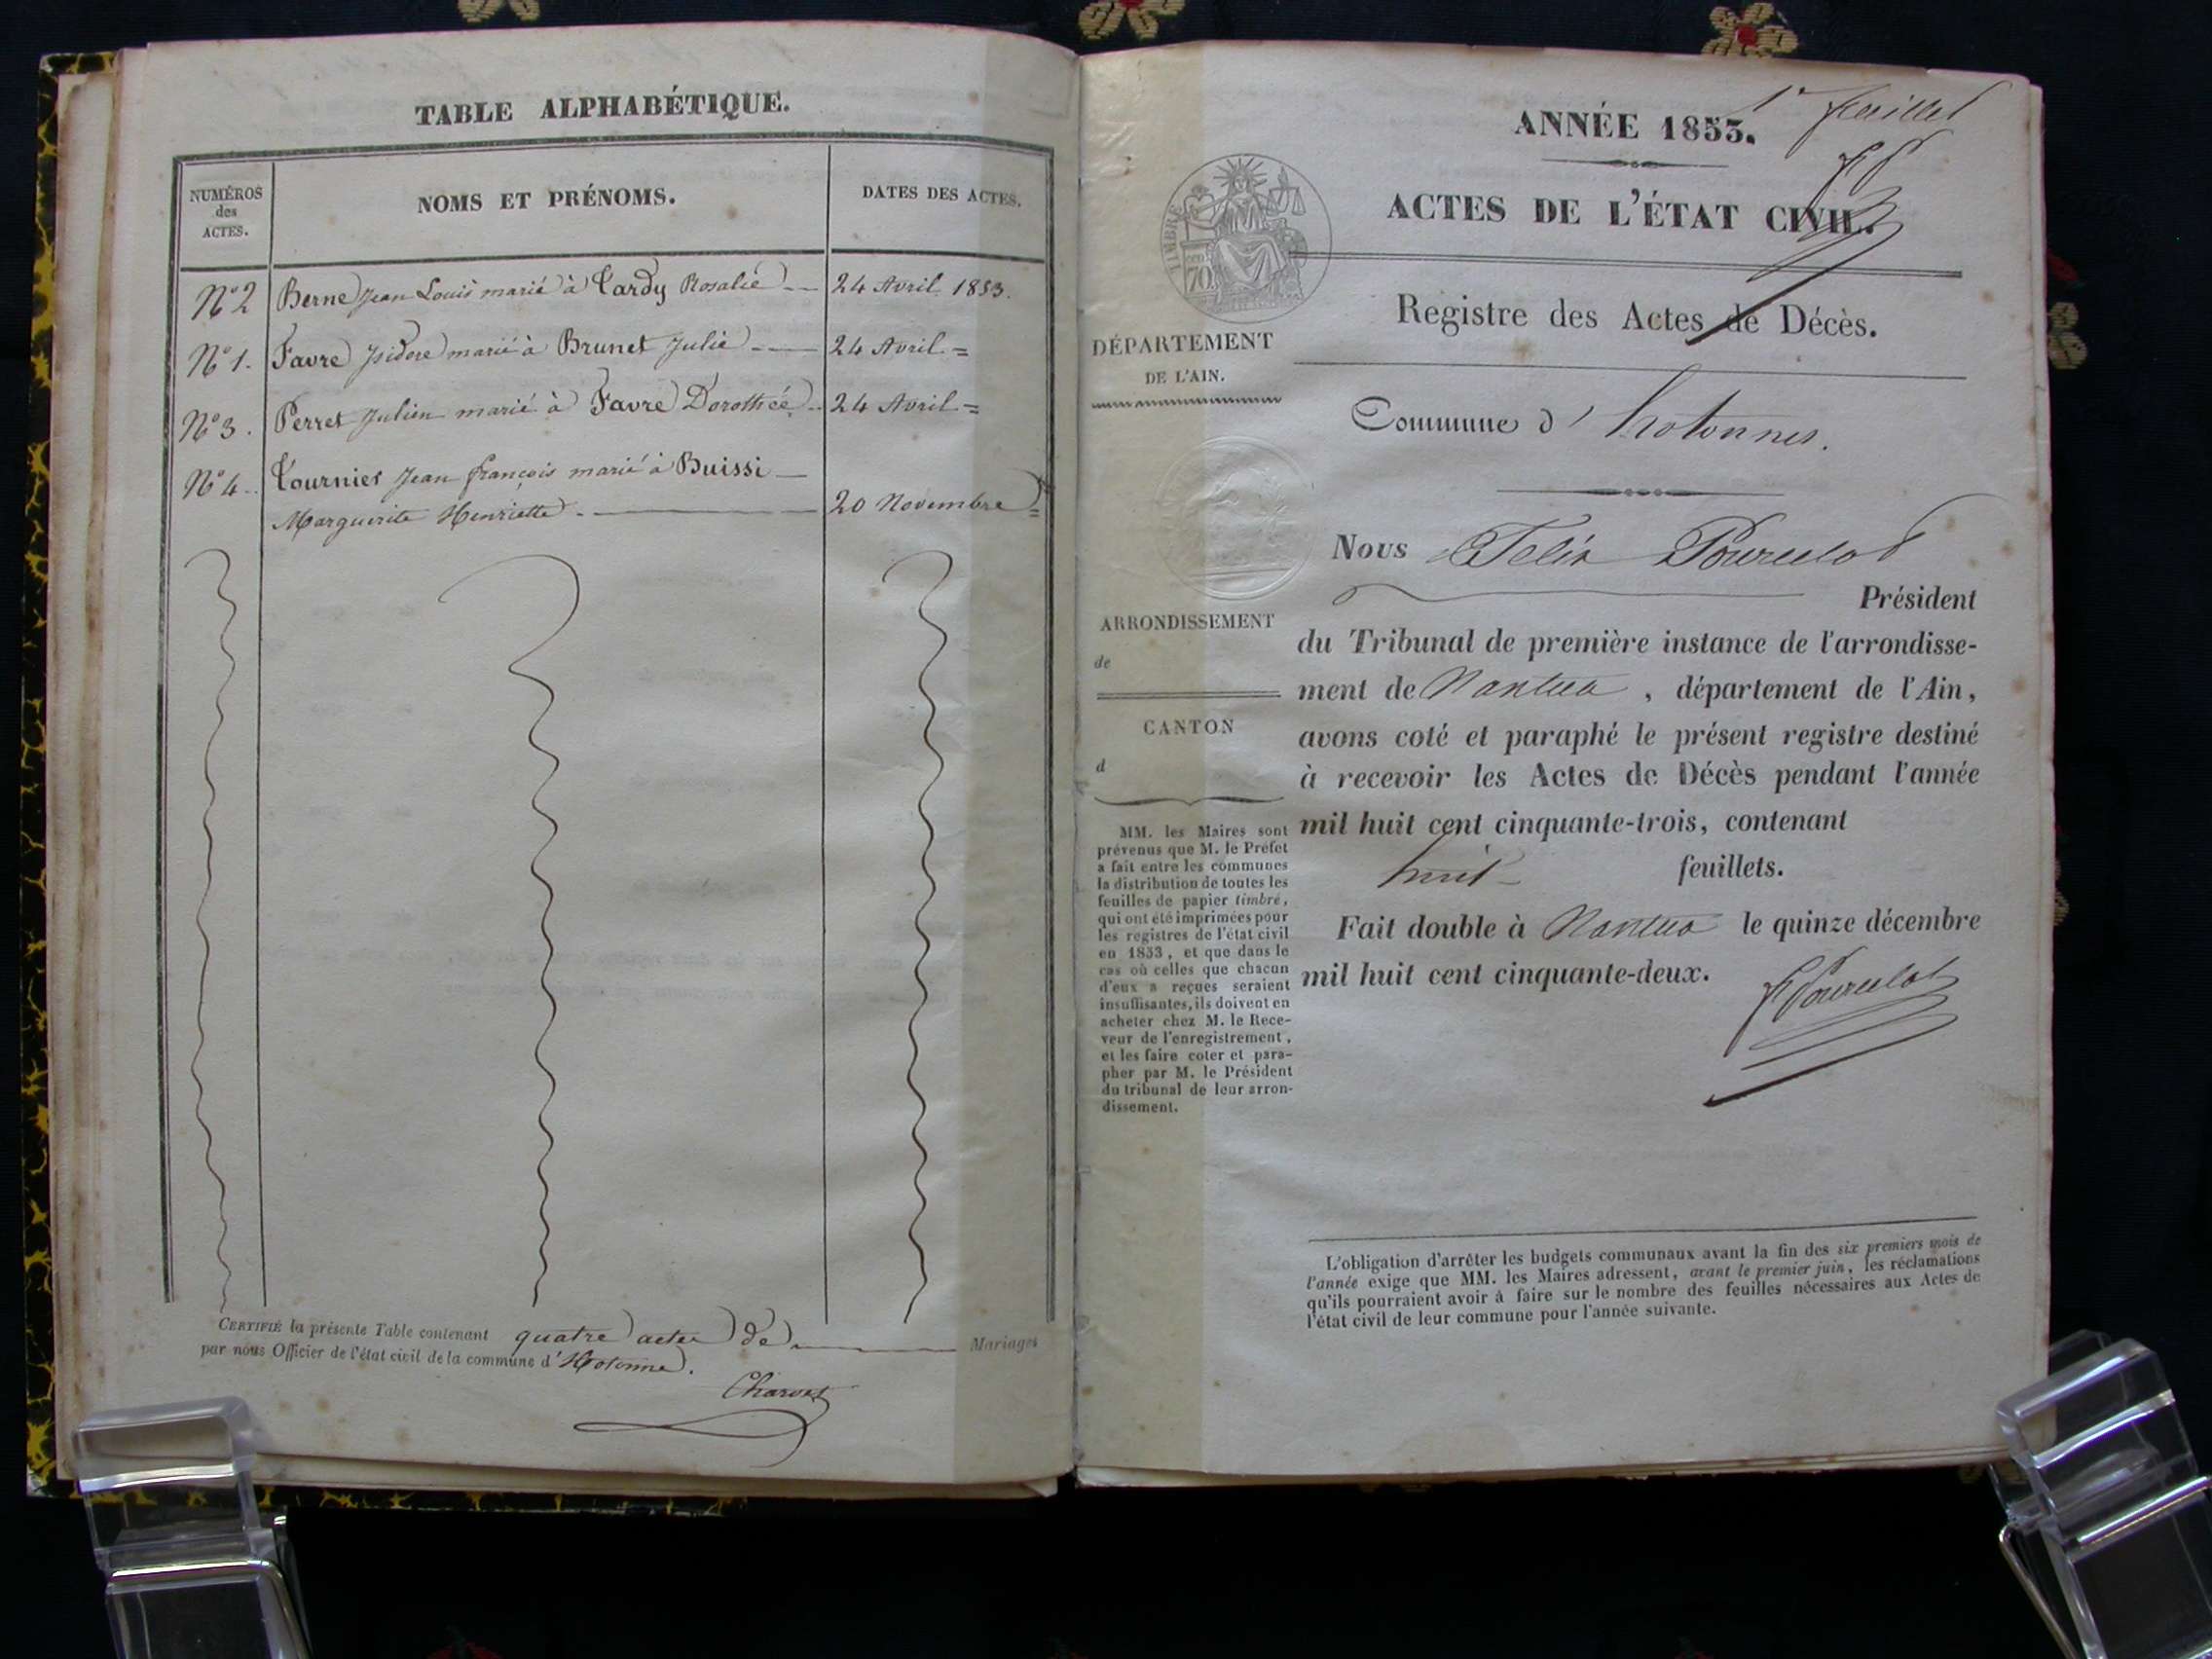 TABLE ALPHABÉTIQUE.
NUMÉROS
des
ACTES.
NOMS ET PRÉNOMS.
DATES DES ACTES.
N° 2 Berne Jean Louis marié à Tardy Rosalie 24 Avril 1853.
N° 1. Favre Isidore marié à Brunet Julie 24 Avril =
N° 3. Perret Julien marié à Favre Dorothée 24 Avril =
N° 4 Tournier Jean françois marié à Buissi
Marguerite Henriette 20 Novembre =
CERTIFIÉ la présente Table contenant quatre actes de Mariages
par nous Officier de l'état civil de la commune d'Hotonne.
Charvet
1er feuillet
ANNÉE 1853.
ACTES DE L'ÉTAT CIVIL.
TIMBRE
70
Registre des Actes de Décès.
DÉPARTEMENT
DE L'AIN.
Commune d'hotonnes.
Nous Félix Pourcelot
Président
ARRONDISSEMENT
de
CANTON
d
du Tribunal de première instance de l'arrondisse-
ment de Nantua, département de l'Ain,
avons coté et paraphé le présent registre destiné
à recevoir les Actes de Décès pendant l'année
mil huit cent cinquante-trois, contenant
huit feuillets.
Fait double à Nantua le quinze décembre
mil huit cent cinquante-deux.
FPourcelot
MM. les Maires sont
prévenus que M. le Préfet
a fait entre les communes
la distribution de toutes les
feuilles de papier timbré,
qui ont été imprimées pour
les registres de l'état civil
en 1853, et que dans le
cas où celles que chacun
d'eux a reçues seraient
insuffisantes, ils doivent en
acheter chez M. le Rece-
veur de l'enregistrement,
et les faire coter et para-
pher par M. le Président
du tribunal de leur arron-
dissement.
L'obligation d'arrêter les budgets communaux avant la fin des six premiers mois de
l'année exige que MM. les Maires adressent, avant le premier juin, les réclamations
qu'ils pourraient avoir à faire sur le nombre des feuilles nécessaires aux Actes de
l'état civil de leur commune pour l'année suivante.